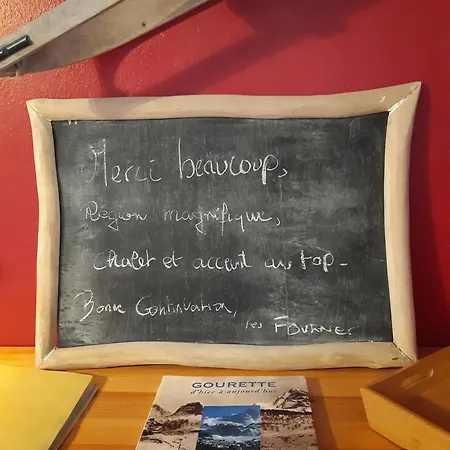 Merci beaucoup,
Région magnifique,
Chalet et accueil au top-
Bonne Continuation,
les FOURNIER
GOURETTE
d'hier à aujourd'hui